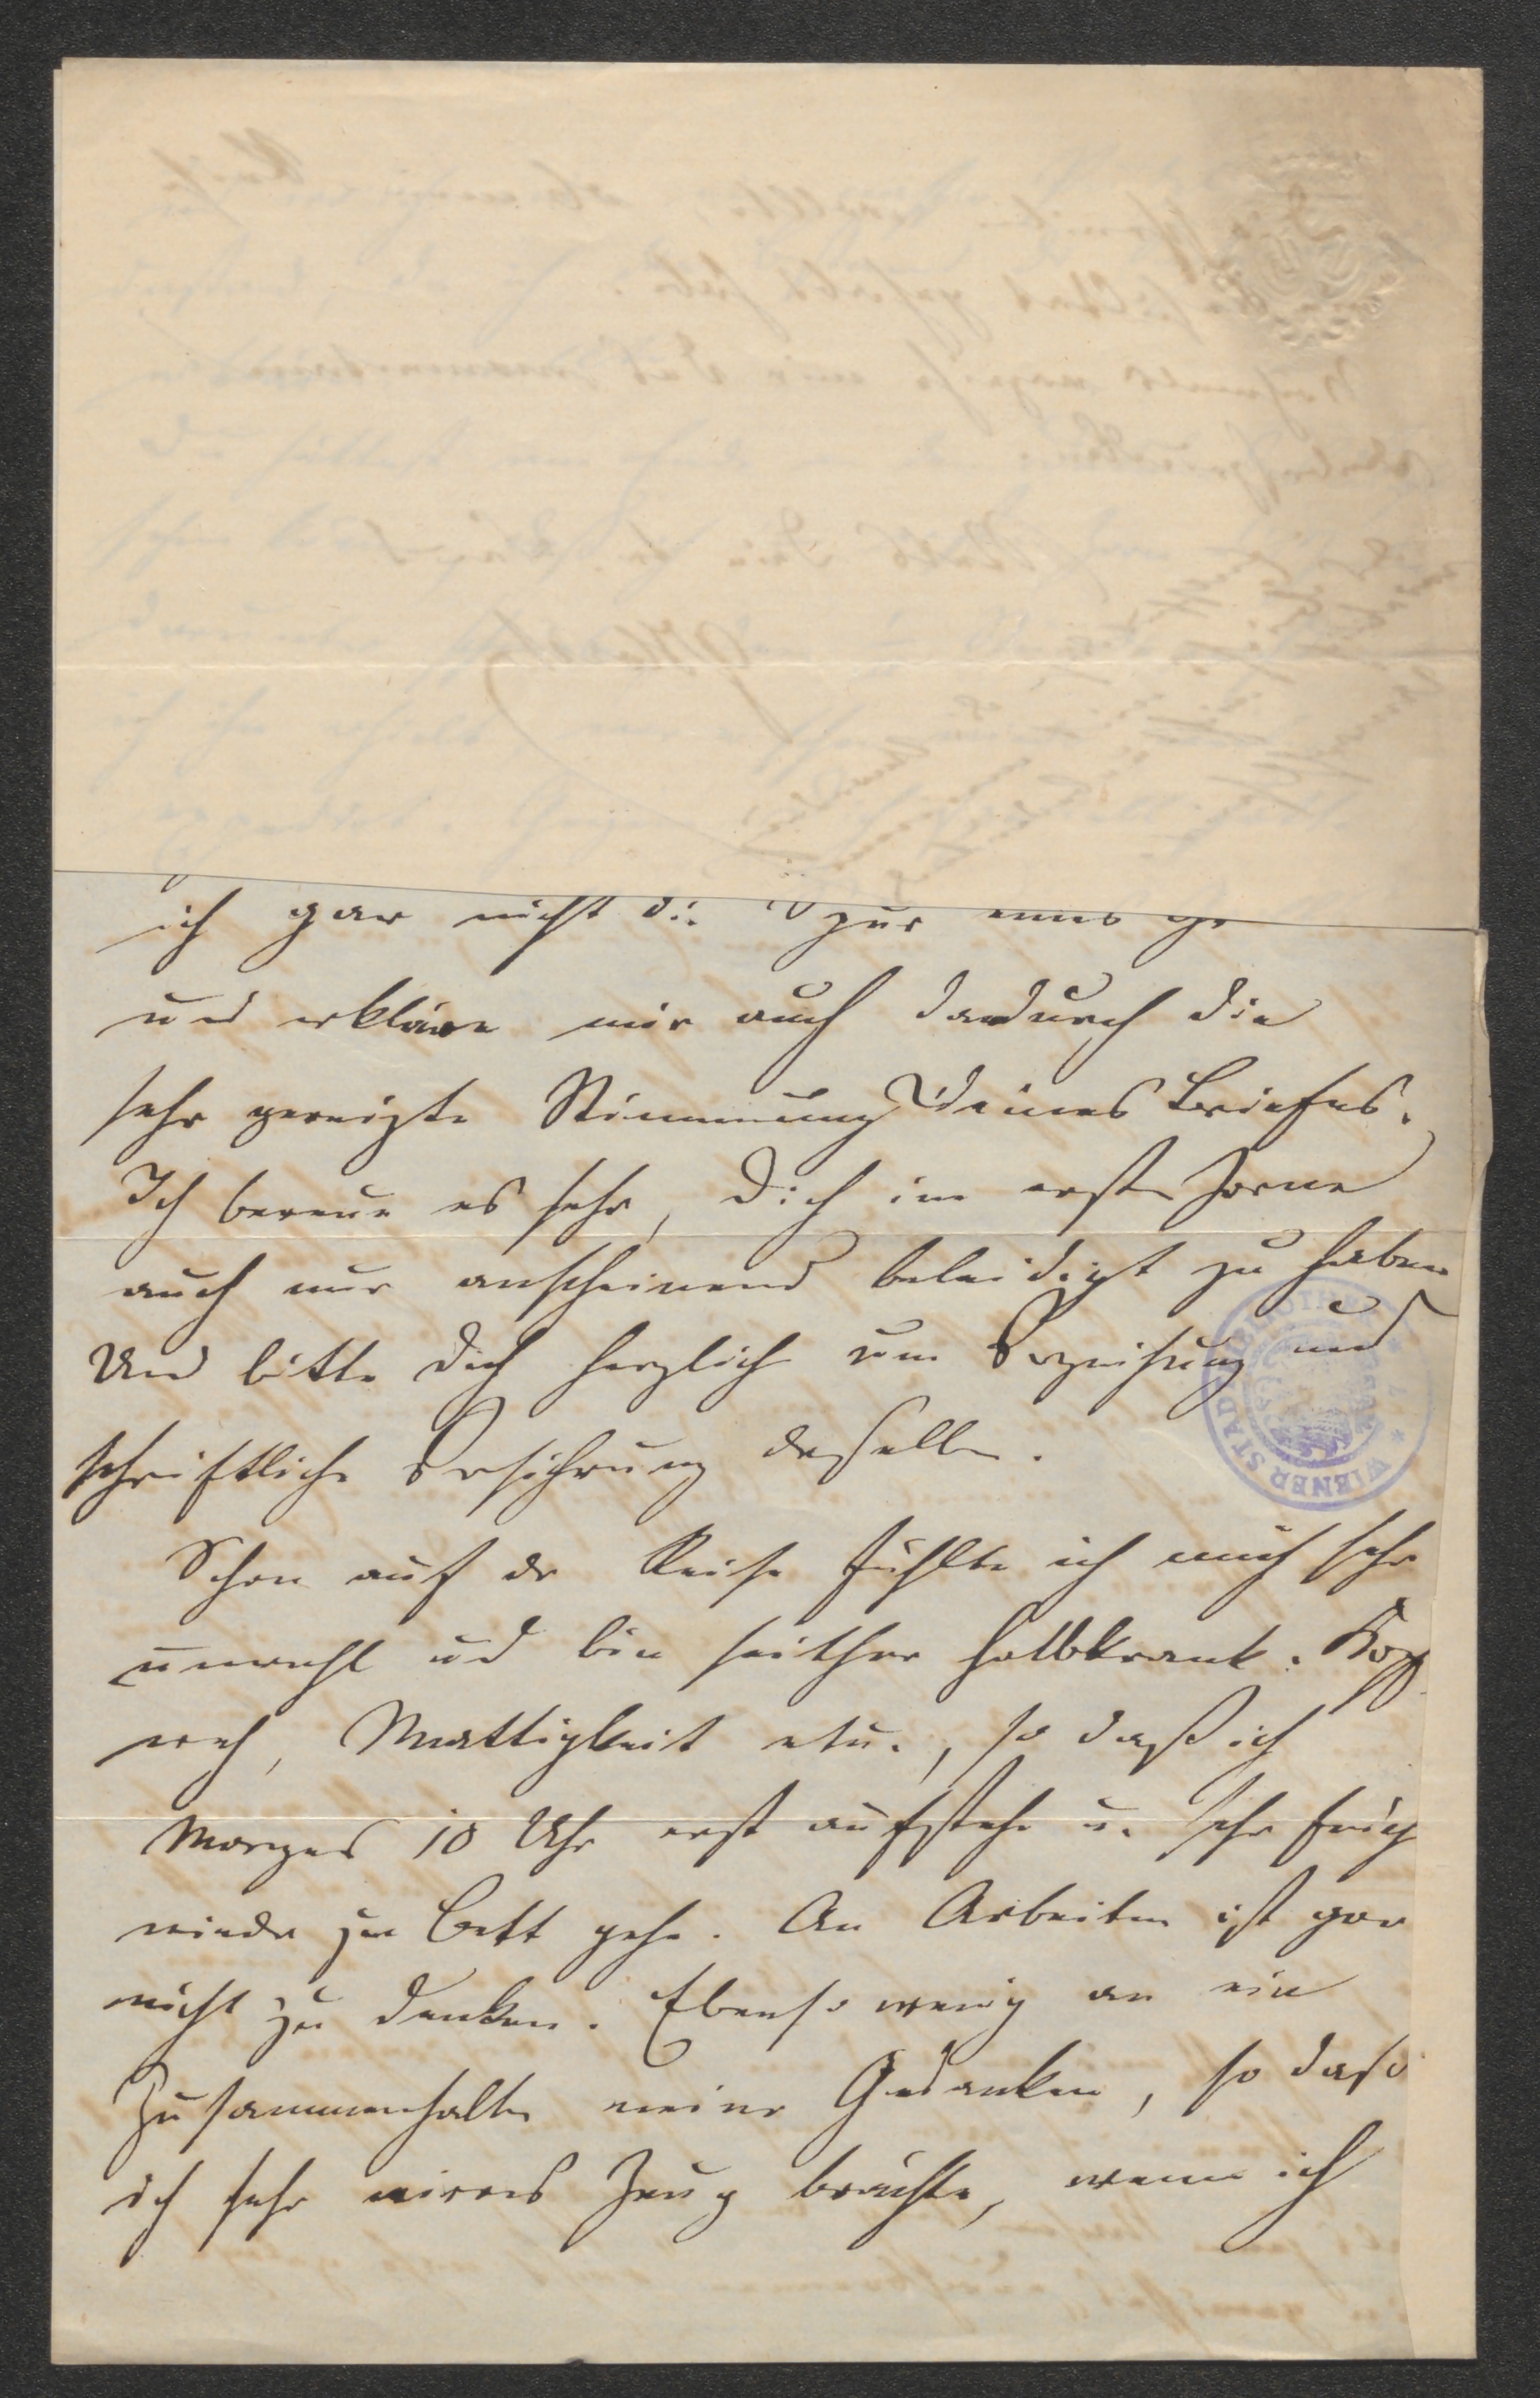 ich gar nicht die Spur eines
und erkläre mir auch dadurch die
sehr gereizte Stimmung Deines Briefes.
Ich bereue es sehr, Dich im ersten Zorne
auch nur anscheinend beleidigt zu haben
Und bitte Dich herzlich um Verzeihung und
schriftliche Versicherung derselben.
Schon auf der Reise fühlte ich mich sehr
unwohl und bin seither halbkrank. Kopf
weh, Mattigkeit etc., so daß ich
Morgens 10 Uhr erst aufstehe u. sehr früh
wieder zu Bett gehe. An Arbeiten ist gar
nicht zu denken. Ebenso wenig an ein
Zusammenhalten meiner Gedanken, so daß
ich sehr wirres Zeug brächte, wenn ich
WIENER STADTBIBLIOTHEK